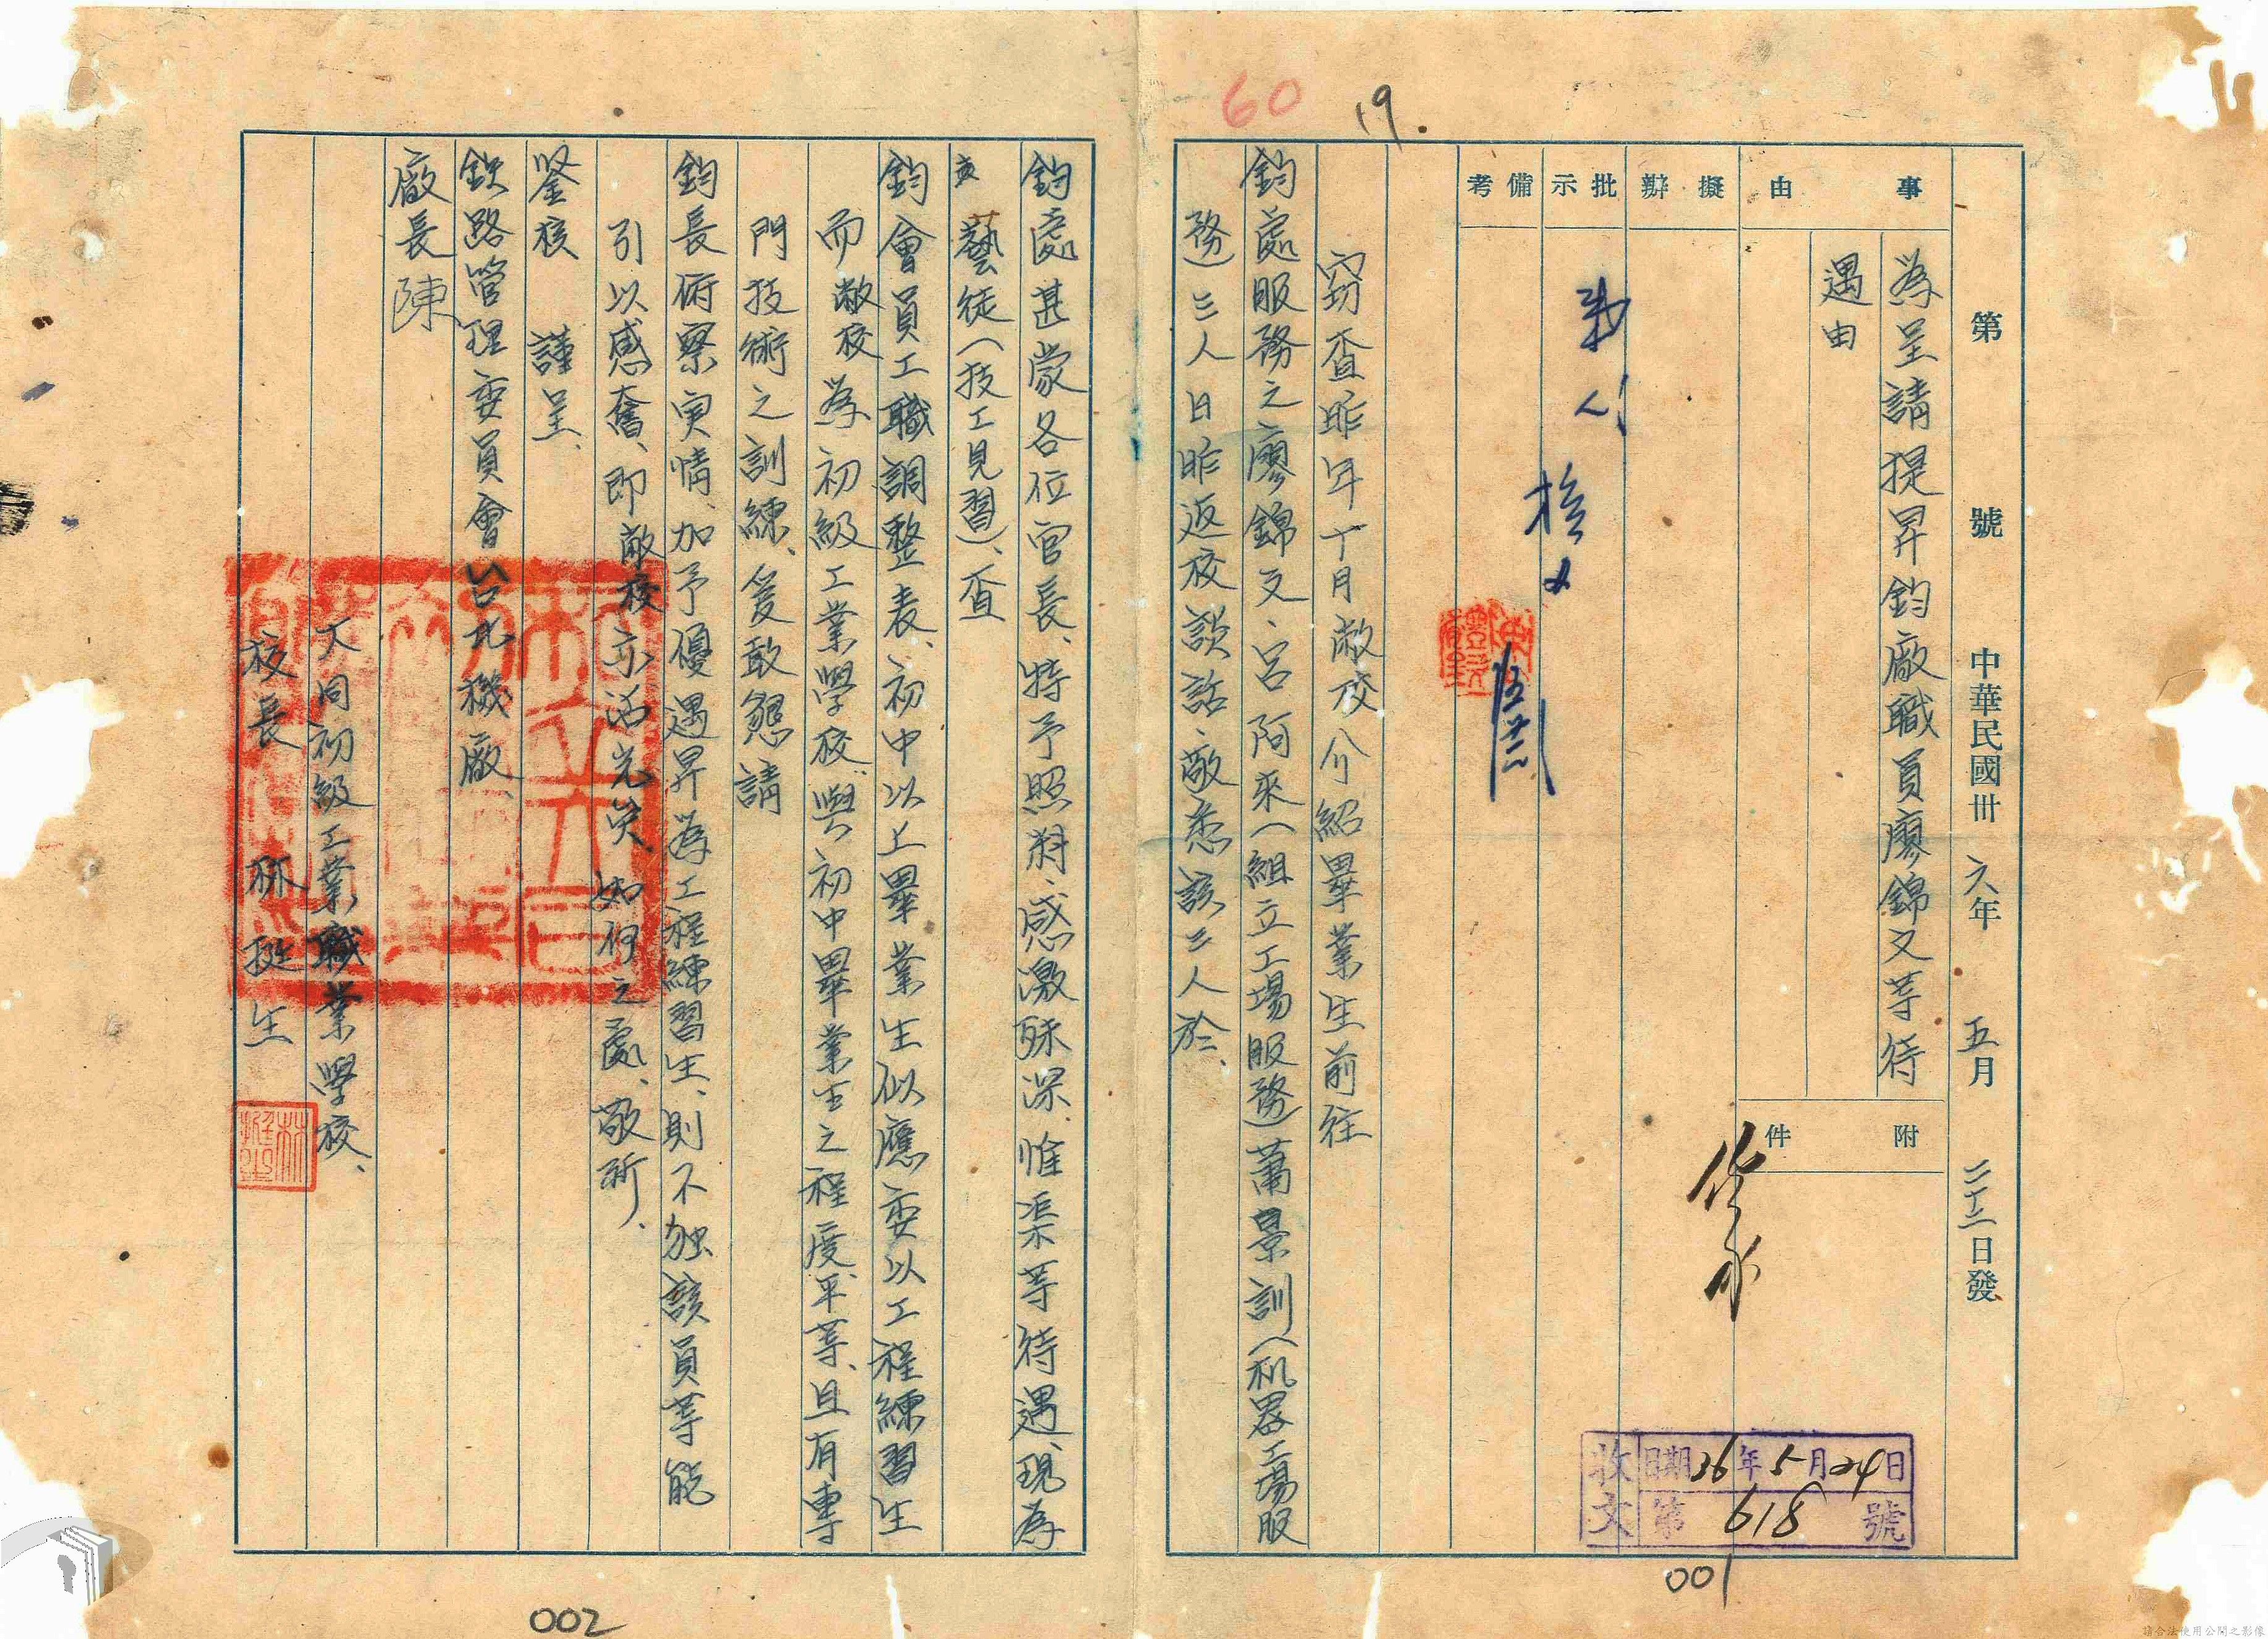 60
19.
第 號 中華民國卅六年 五月 二十二日發
事由
為呈請提昇鈞廠職員廖錦文等待
遇由
附件
擬辦
批示
備考
竊查昨年十月敝校介紹畢業生前往
鈞處服務之廖錦文、呂阿來(組立工場服務)蕭景訓(机器工場服
務)三人日昨返校談話、敬悉該三人於、
收文 日期36年5月24日
第618號
001
鈞處甚蒙各位官長、特予照料、感激殊深、惟渠等待遇、現為
藝徒(技工見習)、查
鈞會員工職調整表、初中以上畢業生似應委以工程練習生
而敝校為初級工業學校、與初中畢業生之程度平等、且有專
門技術之訓練、爰敢懇請
鈞長俯察実情、加予優遇昇為工程練習生、則不独該員等能
引以感奮、即敝校亦沾光榮、如何之處、敬祈、
鑒核 謹呈、
鉄路管理委員會台北機廠、
廠長陳
大同初級工業職業學校、
校長 林挺生
林挺生
002
請合法使用公開之影像